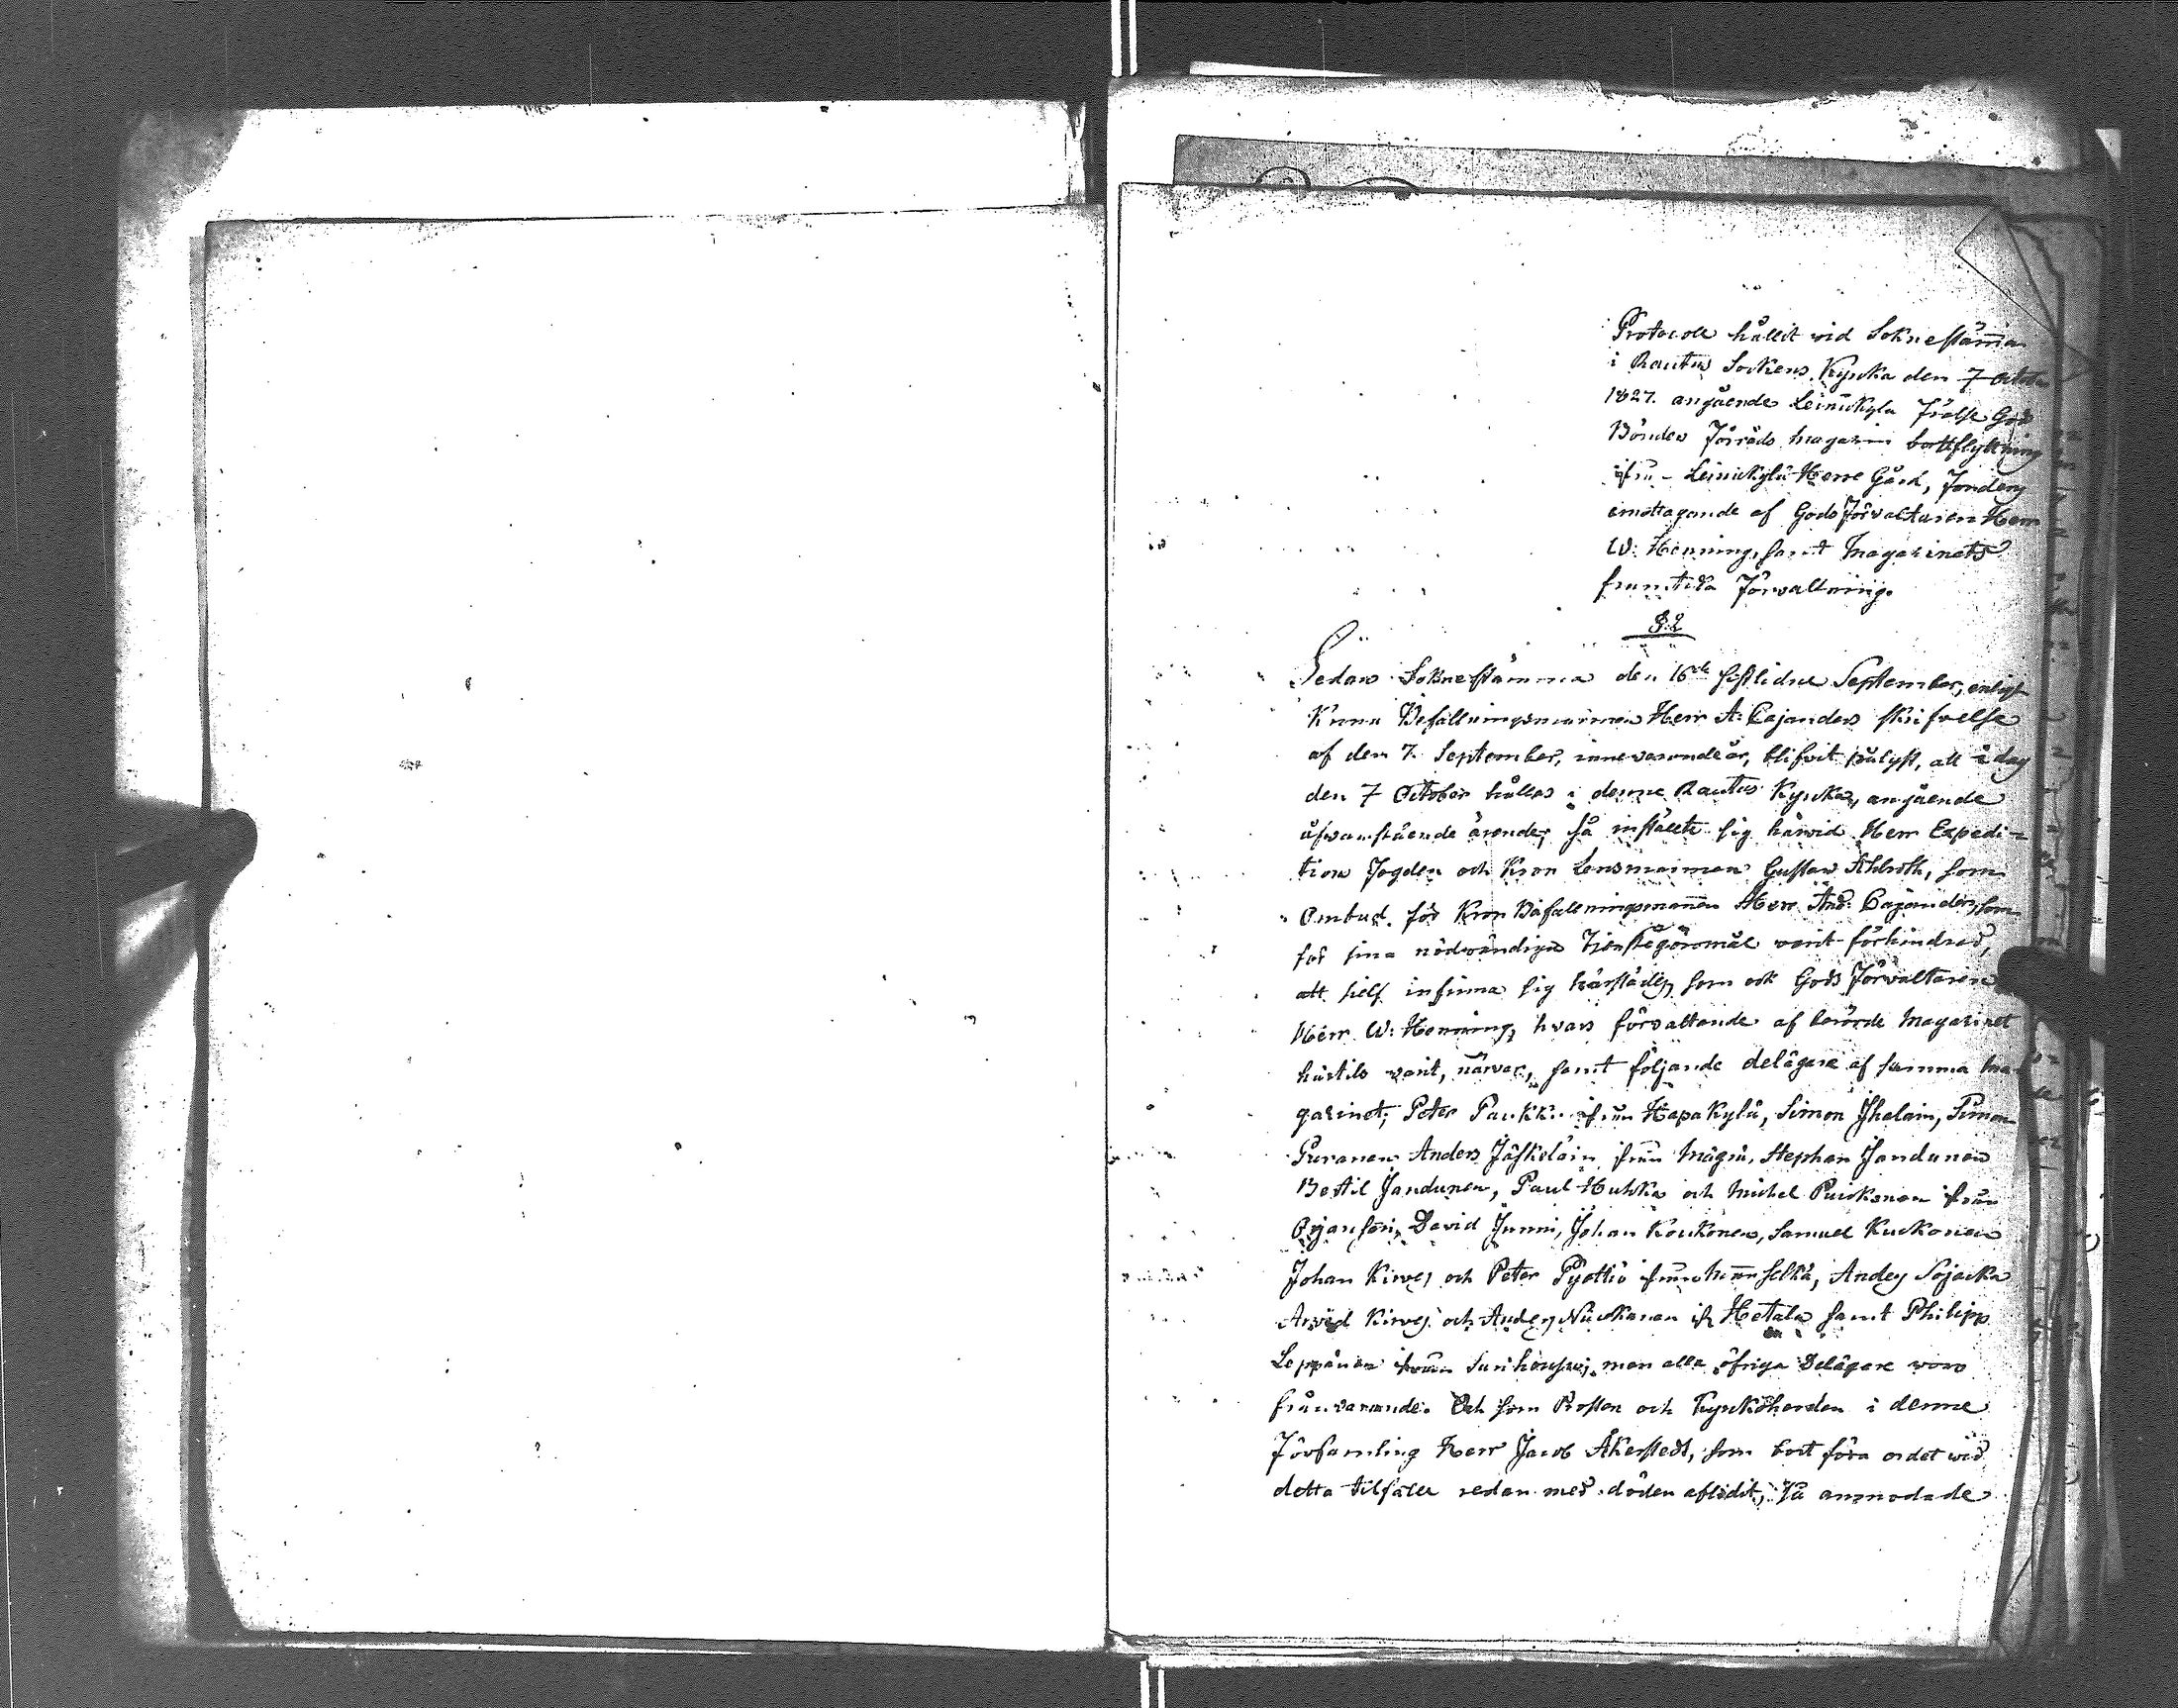 Protocoll hållit vid Sokne stämma
i Rautus Sockens Kyrka den 7 Octob
1827. angående Leinikylä Frälse God
Bönder Förråds magazins bortflyttning
ifrån Leinikylä Herre Gård,
emottagande af Gods Förvaltaren Herr
W: Henning, samt Magazinets
framtida Förvaltning.
§:2
Sedan Sokne stämma den 16de sistlidne September, enligt
Krono Befallningsmannen Herr A: Cajanders skrifvelse
af den 7. September, innevarande år, blifvit pålyst, att i dag
den 7 October hålles i denne Rautus Kyrka, angående
åfvanstående ärende; så inställte sig härvid Herr Expedi-
tion Fogden och Kron Lensmannen Gustav Ahlroth, som
Ombud för Kron Befallningsmannen Herr And: Cajander, som
för sina nödvändiga Tjenstegöromål varit förhindrad,
att sielf infinna sig härstädes, som ock Gods Förvaltaren
Herr W: Henning, hvars förvaltande af berörde Magazinet
härtils varit, närvar, samt följande delägare af samma Ma-
gazinet; Peter Paukku ifrån Hapakylä, Simon Ihalain, Simon
Puranen Anders Jäskeläin från Mägrä, Stephan Jandunen
Bertil Jandunen, Paul Huhka och Michel Puickonen från
Orjansari, David Junni, Johan Koukonen, Samuel Kuckonen
Johan Kirves och Peter Pyöttiö från Mannselkä, Anders Sojacka
Arvid Kirves och Anders Nuckanen ifr Hetala samt Philipp
Leppänen ifrån men alla öfriga Delägare voro
frånvarande. Och som Prosten och Kyrkoherden i denne
Församling Herr Jacob Åkerstedt, som bort föra ordet wid
detta tilfälle redan med döden aflidit, så anmodade